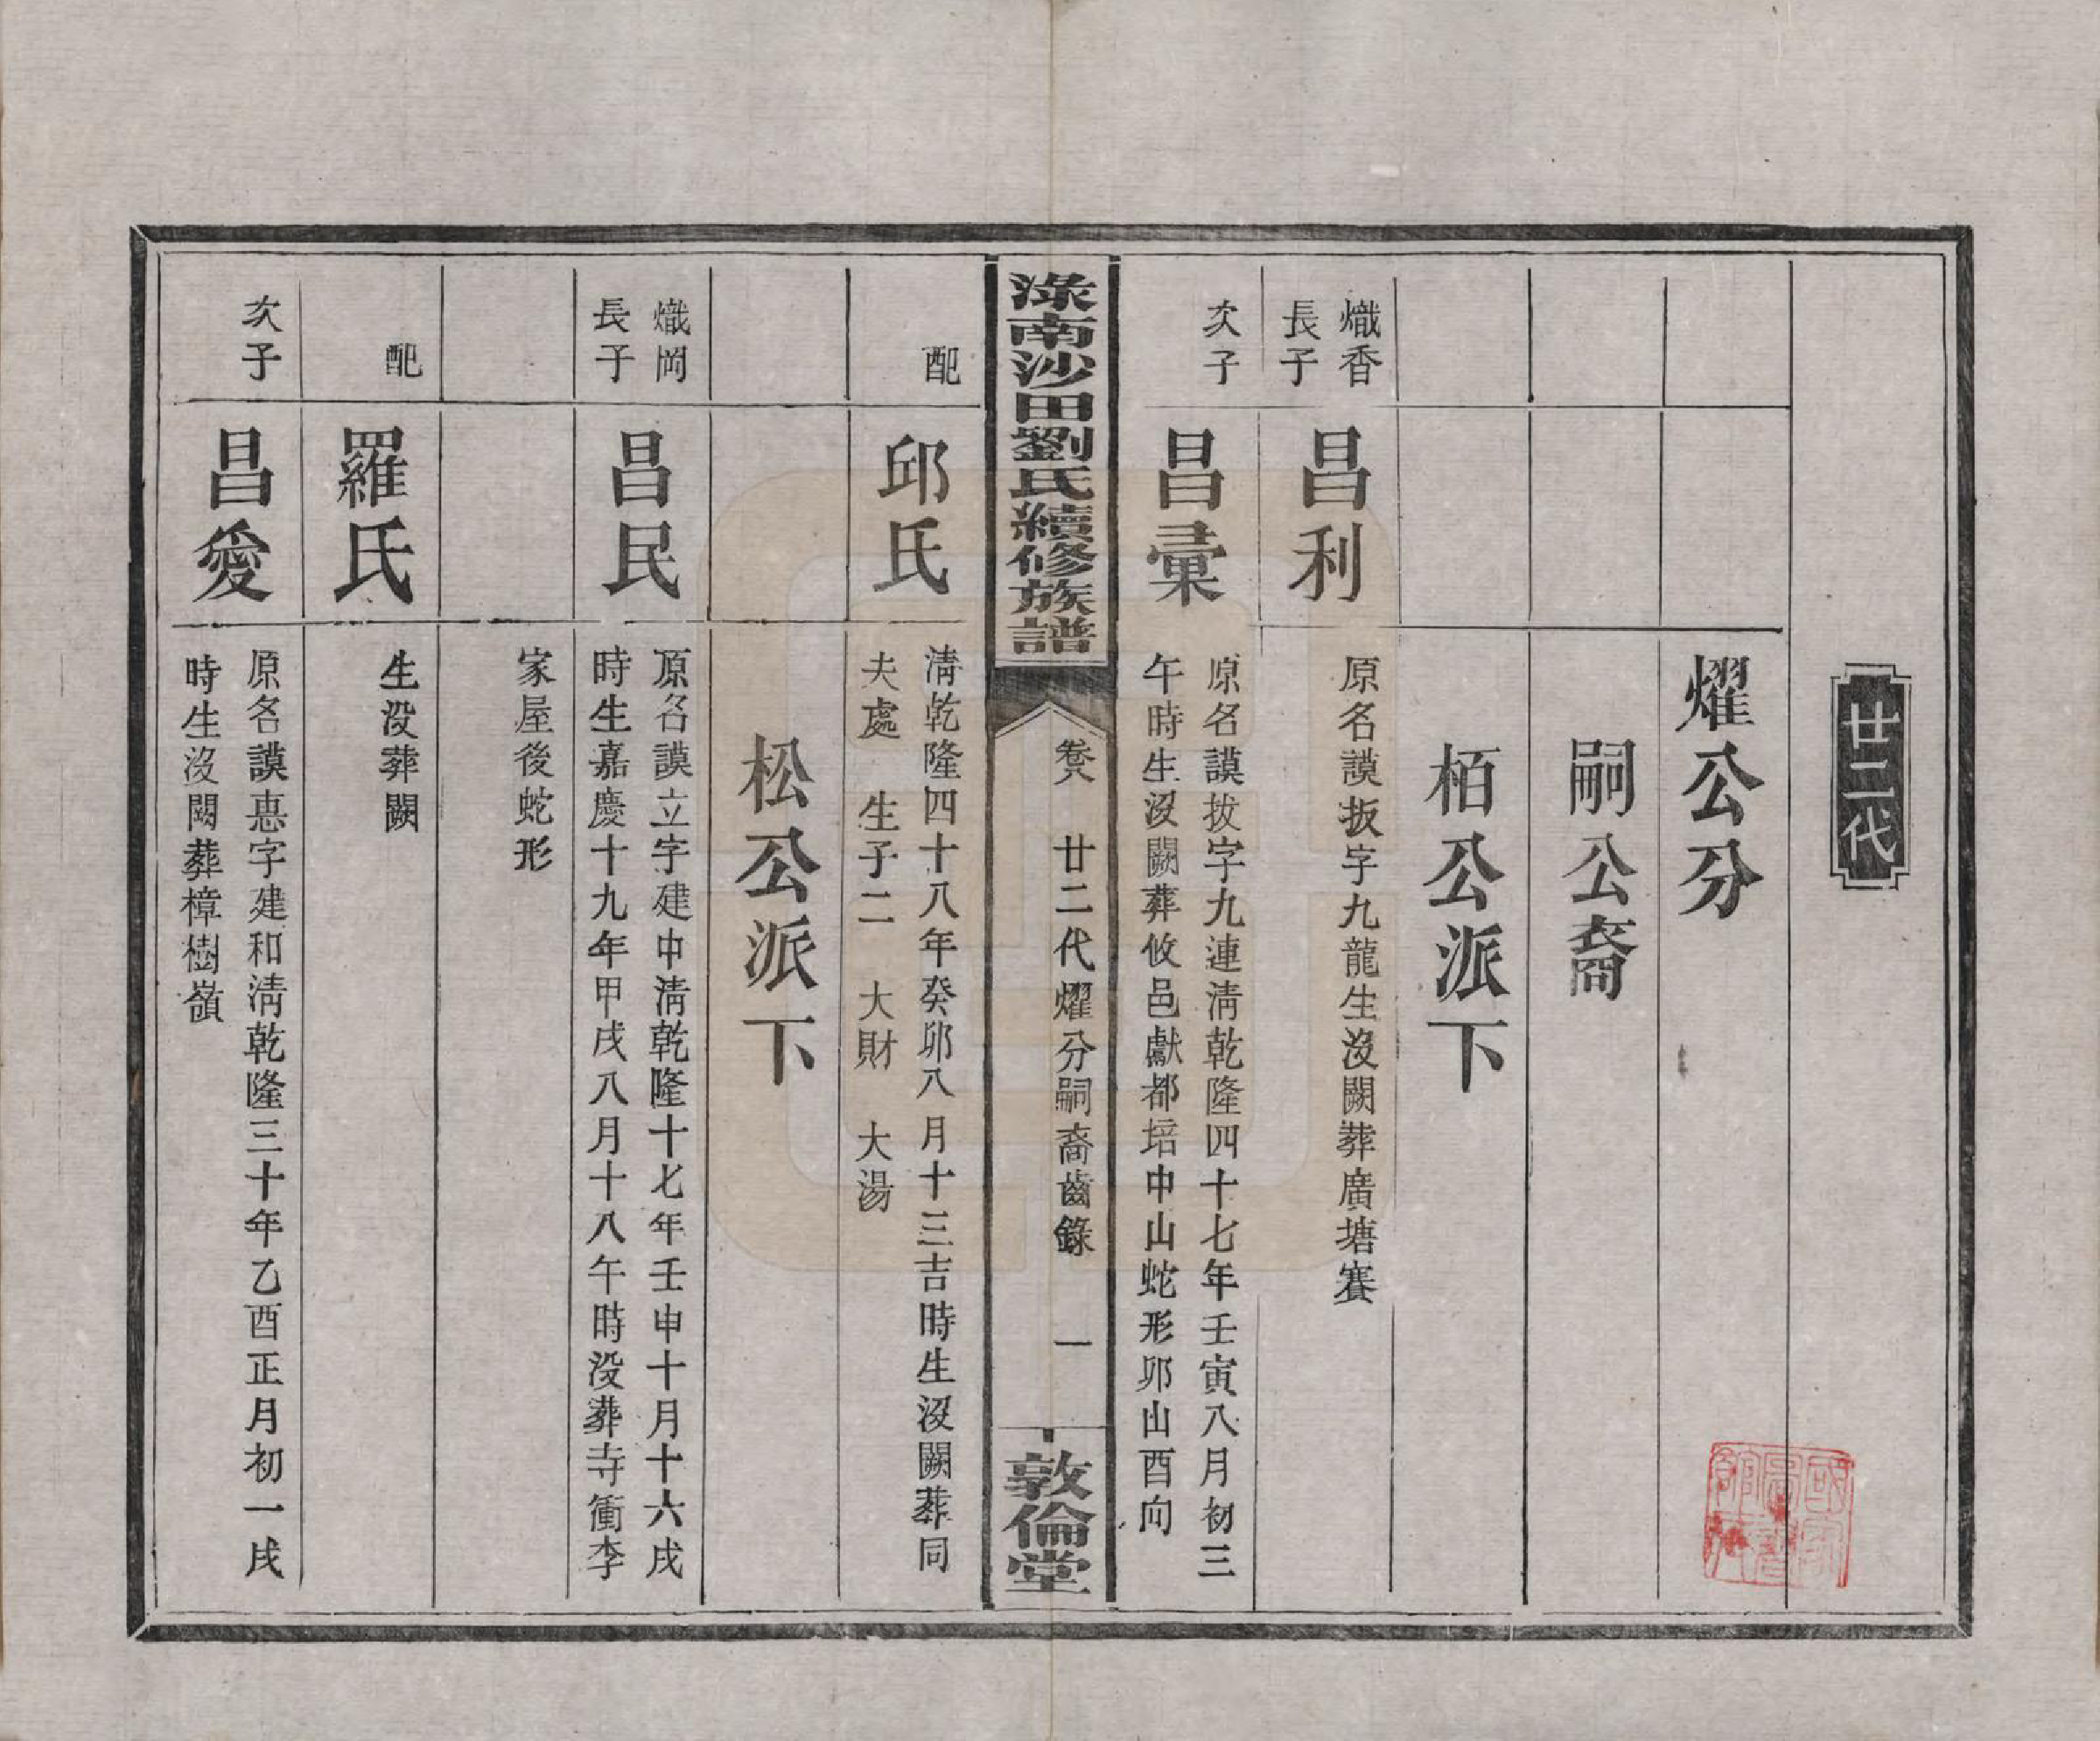 廿二代
燿公分
嗣公裔
栢公派下
熾香
長子
昌利
原名謨扳字九龍生沒闕葬廣塘賽
次子
昌彙
原名謨拔字九連淸乾隆四十七年壬寅八月初三
午時生沒闕葬攸邑獻都培中山蛇形卯山酉向
淥南沙田劉氏續修族譜
卷八
廿二代燿分嗣裔齒錄
一
敦倫堂
配
邱氏
淸乾隆四十八年癸卯八月十三吉時生沒闕葬同
夫處 生子二 大財 大湯
松公派下
熾岡
長子
昌民
原名謨立字建中淸乾隆十七年壬申十月十六戌
時生嘉慶十九年甲戌八月十八午時沒葬寺衝李
家屋後蛇形
配
羅氏
生沒葬闕
次子
昌愛
原名謨惪字建和淸乾隆三十年乙酉正月初一戌
時生沒闕葬樟樹嶺